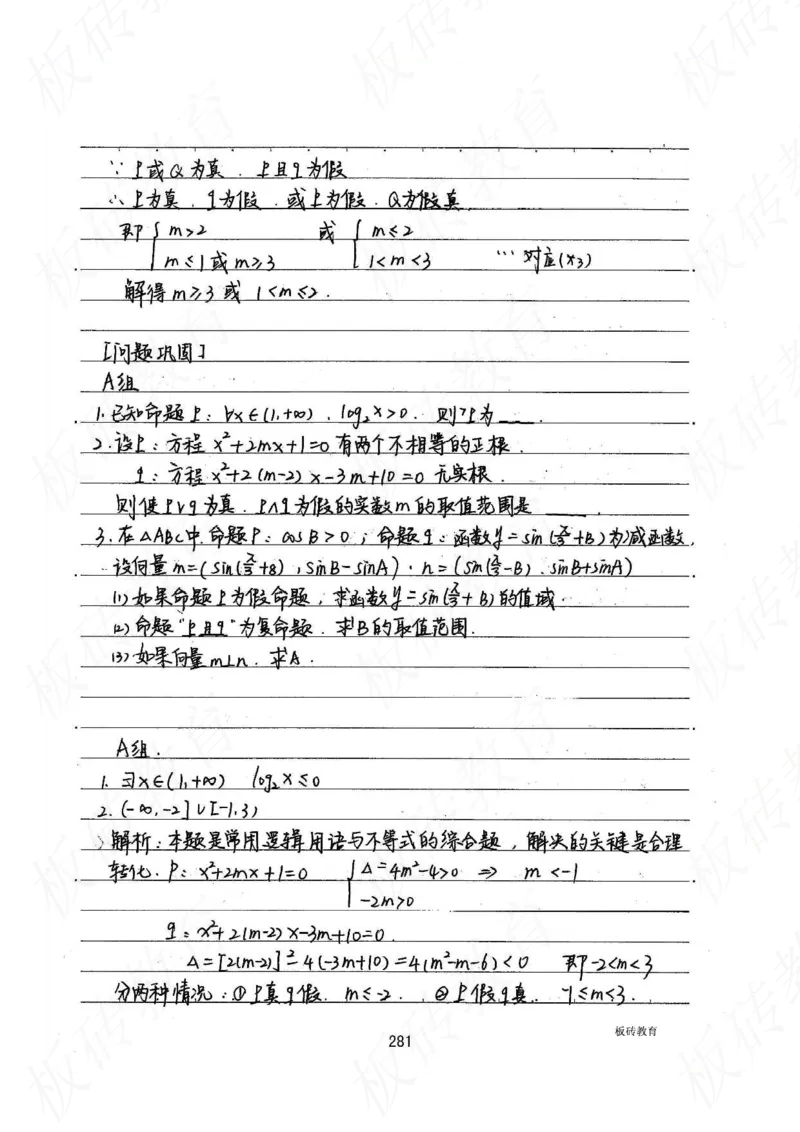 ∵ p或Q为真．p且q为假
∴ p为真．q为假．或p为假．Q为假真
即 { m>2 或 { m≤2
m≤1或m≥3 1<m<3 …对应(x3)
解得m≥3或 1<m≤2．
[问题巩固]
A组
1.已知命题p：∀x∈(1,+∞)．log₂x>0．则¬p为____．
2.设p：方程 x²+2mx+1=0有两个不相等的正根．
q：方程x²+2(m-2)x-3m+10=0 无实根．
则使p∨q为真．p∧q为假的实数m的取值范围是 ____．
3.在△ABC中.命题P：cosB>0；命题q：函数y=sin(π/3+B)为减函数．
设向量m=(sin(π/3+B)，sinB-sinA)．n=(sin(π/3-B)．sinB+sinA)
(1)如果命题p为假命题，求函数y=sin(π/3+B)的值域．
(2)命题"p且q"为复命题．求B的取值范围．
(3)如果向量m⊥n．求A．
A组．
1. ∃x∈(1,+∞) log₂x≤0
2. (-∞,-2]∪[-1,3)
解析：本题是常用逻辑用语与不等式的综合题，解决的关键是合理
转化．P：x²+2mx+1=0 { Δ=4m²-4>0 ⇒ m<-1
-2m>0
q：x²+2(m-2)x-3m+10=0．
Δ=[2(m-2)]²-4(-3m+10)=4(m²-m-6)<0 即-2<m<3
分两种情况：①p真q假．m≤-2．②p假q真．-1≤m<3．
281
板砖教育